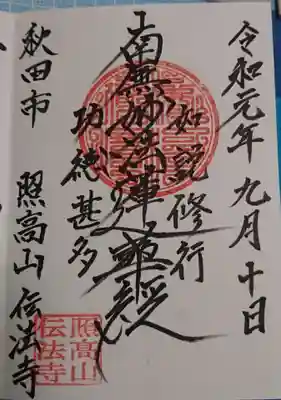 令和元年 九月十日
如説修行
南無妙法蓮華経
功徳甚多
秋田市 照高山 伝法寺
照高山
伝法寺